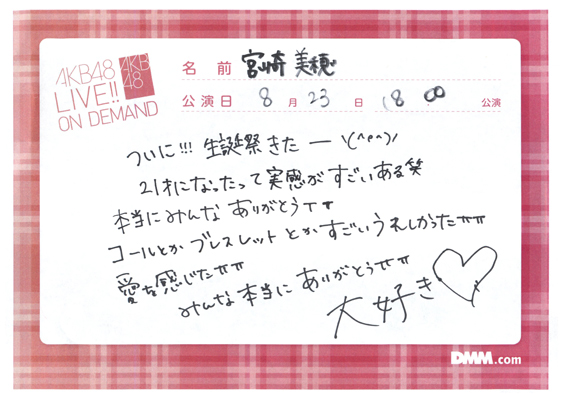 AKB48
LIVE!!
ON DEMAND
AKB
48
名前 宮崎美穂
公演日 8月23日 18:00 公演
ついに!!! 生誕祭きたー ヽ(^o^)ノ
21才になったって実感がすごいある笑
本当にみんなありがとうTT
コールとかブレスレットとかすごいうれしかったTT
愛を感じたTT
みんな本当にありがとうTT
大好き♡
DMM.com